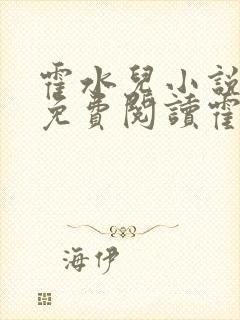 霍水兒小說
免費閱讀霍
海伊